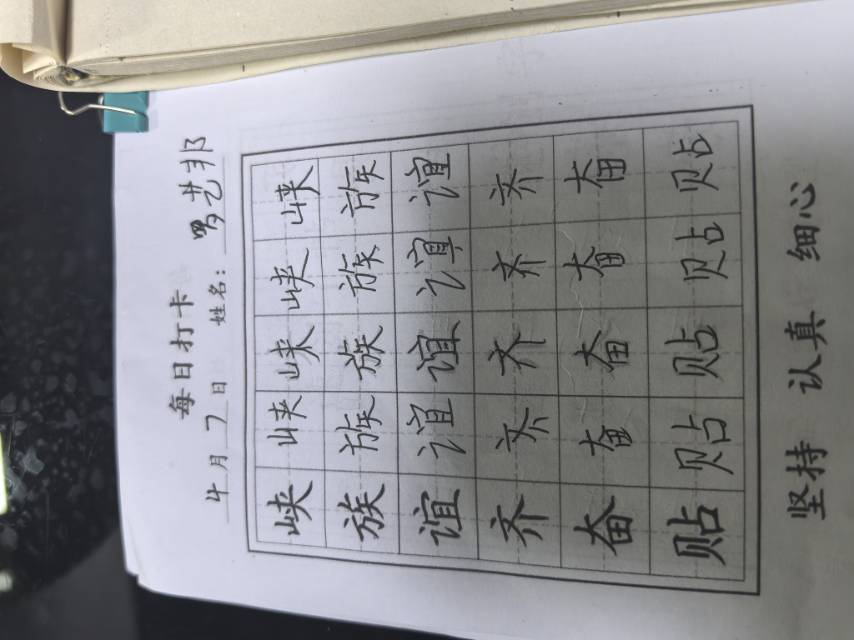 每日打卡
4月7日 姓名：罗艺邦
峡峡峡峡峡
族族族族族
谊谊谊谊谊
齐齐齐齐齐
奋奋奋奋奋
贴贴贴贴贴
坚持 认真 细心